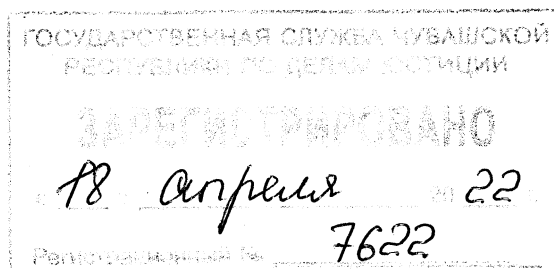 ГОСУДАРСТВЕННАЯ СЛУЖБА ЧУВАШСКОЙ
РЕСПУБЛИКИ ПО ДЕЛАМ ЮСТИЦИИ
ЗАРЕГИСТРИРОВАНО
18 апреля 2022
Регистрационный № 7622